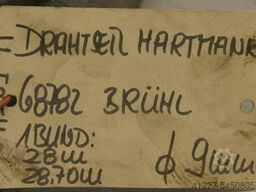 DRAHTSEIL HARTMANN
68782 BRÜHL
1 BUND:
28 m
28.70 m
φ 9mm
41227-5450805